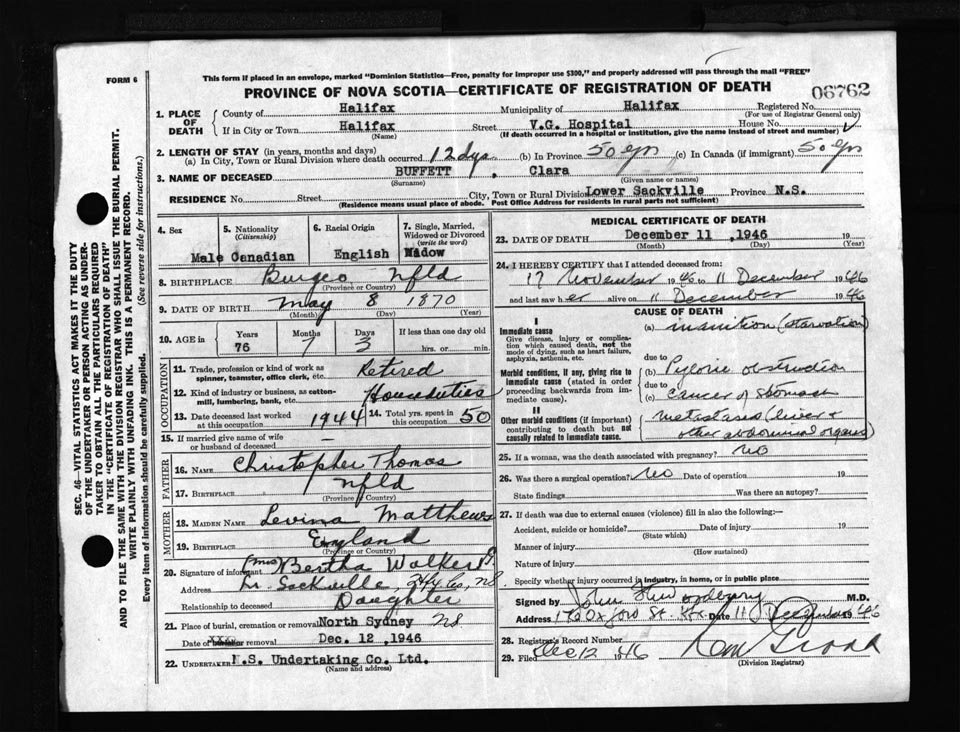 FORM 6
This form if placed in an envelope, marked "Dominion Statistics—Free, penalty for improper use $300," and properly addressed will pass through the mail "FREE"
PROVINCE OF NOVA SCOTIA—CERTIFICATE OF REGISTRATION OF DEATH
06762
1. PLACE OF DEATH
County of Halifax Municipality of Halifax Registered No.
(For use of Registrar General only)
If in City or Town Halifax Street V.G. Hospital House No.
(Name) (If death occurred in a hospital or institution, give the name instead of street and number)
2. LENGTH OF STAY (in years, months and days)
(a) In City, Town or Rural Division where death occurred 12 dys. (b) In Province 50 yrs (c) In Canada (if immigrant) 50 yrs
3. NAME OF DECEASED BUFFETT , Clara
(Surname) (Given name or names)
RESIDENCE No. Street City, Town or Rural Division Lower Sackville Province N.S.
(Residence means usual place of abode. Post Office Address for residents in rural parts not sufficient)
4. Sex Male
5. Nationality (Citizenship) Canadian
6. Racial Origin English
7. Single, Married, Widowed or Divorced (write the word) Widow
8. BIRTHPLACE Burgeo Nfld
(Province or Country)
9. DATE OF BIRTH May 8 1870
(Month) (Day) (Year)
10. AGE in Years 76 Months 7 Days 3 If less than one day old hrs. or min.
OCCUPATION
11. Trade, profession or kind of work as spinner, teamster, office clerk, etc. Retired
12. Kind of industry or business, as cotton-mill, lumbering, bank, etc. Houseduties
13. Date deceased last worked at this occupation 1944 14. Total yrs. spent in this occupation 50
15. If married give name of wife or husband of deceased —
FATHER
16. NAME Christopher Thomas
17. BIRTHPLACE Nfld
(Province or Country)
MOTHER
18. MAIDEN NAME Levina Matthews
19. BIRTHPLACE England
(Province or Country)
20. Signature of informant (Mrs) Bertha Walker
Address Lr. Sackville, Hfx Co, NS
Relationship to deceased Daughter
21. Place of burial, cremation or removal North Sydney NS
Date of burial or removal Dec. 12, 1946
22. UNDERTAKER N.S. Undertaking Co. Ltd.
(Name and address)
MEDICAL CERTIFICATE OF DEATH
23. DATE OF DEATH December 11 , 1946 19
(Month) (Day) (Year)
24. I HEREBY CERTIFY that I attended deceased from:
17 November 1946 to 11 December 1946
and last saw her alive on 11 December 1946
CAUSE OF DEATH
I
Immediate cause (a) inanition (starvation)
Give disease, injury or complication which caused death, not the mode of dying, such as heart failure, asphyxia, asthenia, etc.
due to
Morbid conditions, if any, giving rise to immediate cause (stated in order proceeding backwards from immediate cause). (b) Pyloric obstruction
due to
(c) Cancer of Stomach
II
Other morbid conditions (if important) contributing to death but not causally related to immediate cause. metastases (liver + other abdominal organs)
25. If a woman, was the death associated with pregnancy? no
26. Was there a surgical operation? no Date of operation 19
State findings Was there an autopsy?
27. If death was due to external causes (violence) fill in also the following:—
Accident, suicide or homicide? Date of injury 19
(State which)
Manner of injury
(How sustained)
Nature of injury
Specify whether injury occurred in industry, in home, or in public place
Signed by John M.D.
Address Oxford St. Hfx Date 11 December 1946
28. Registrar's Record Number
29. Filed Dec 12 1946
(Division Registrar)
SEC. 46—VITAL STATISTICS ACT MAKES IT THE DUTY
OF THE UNDERTAKER OR PERSON ACTING AS UNDER-
TAKER TO OBTAIN ALL THE PARTICULARS REQUIRED
IN THE "CERTIFICATE OF REGISTRATION OF DEATH"
AND TO FILE THE SAME WITH THE DIVISION REGISTRAR WHO SHALL ISSUE THE BURIAL PERMIT.
WRITE PLAINLY WITH UNFADING INK. THIS IS A PERMANENT RECORD.
Every item of Information should be carefully supplied. (See reverse side for instructions.)